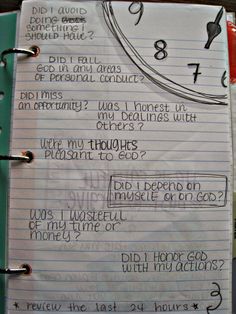 DID I AVOID
DOING
SOMETHING I
SHOULD HAVE?
9
8
7
DID I FAIL
GOD IN ANY AREAS
OF PERSONAL CONDUCT?
DID I MISS
AN OPPORTUNITY?
WAS I HONEST IN
MY DEALINGS WITH
OTHERS?
WERE MY THOUGHTS
PLEASANT TO GOD?
DID I DEPEND ON
MYSELF OR ON GOD?
WAS I WASTEFUL
OF MY TIME OR
MONEY?
DID I HONOR GOD
WITH MY ACTIONS?
3
* review the last 24 hours *